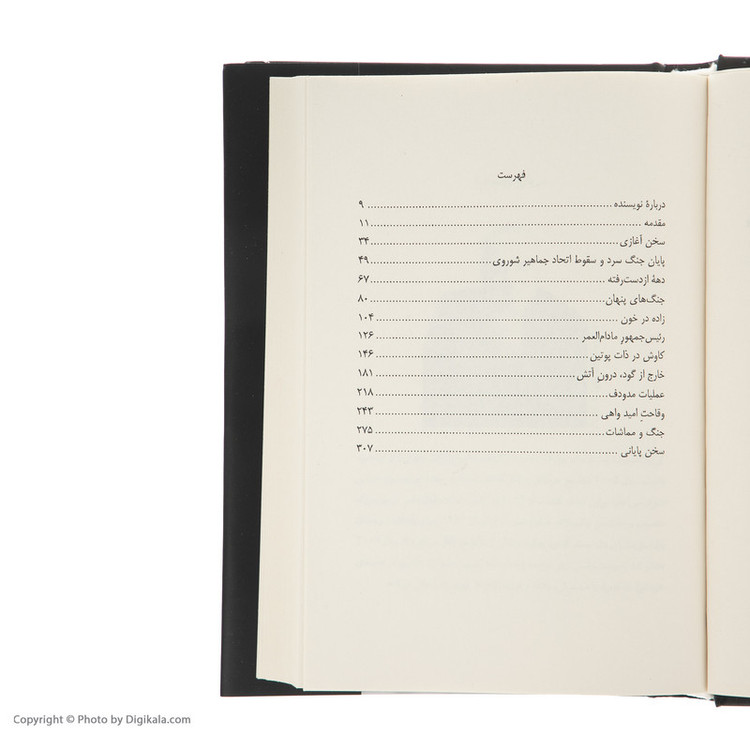 فهرست
دربارهٔ نویسنده ........ ۹
مقدمه ........ ۱۱
سخن آغازی ........ ۳۴
پایان جنگ سرد و سقوط اتحاد جماهیر شوروی ........ ۴۹
دههٔ ازدست‌رفته ........ ۶۷
جنگ‌های پنهان ........ ۸۰
زاده در خون ........ ۱۰۴
رئیس‌جمهورِ مادام‌العمر ........ ۱۲۶
کاوش در ذات پوتین ........ ۱۴۶
خارج از گود، درونِ آتش ........ ۱۸۱
عملیات مدودف ........ ۲۱۸
وقاحتِ امید واهی ........ ۲۴۳
جنگ و مماشات ........ ۲۷۵
سخن پایانی ........ ۳۰۷
Copyright © Photo by Digikala.com